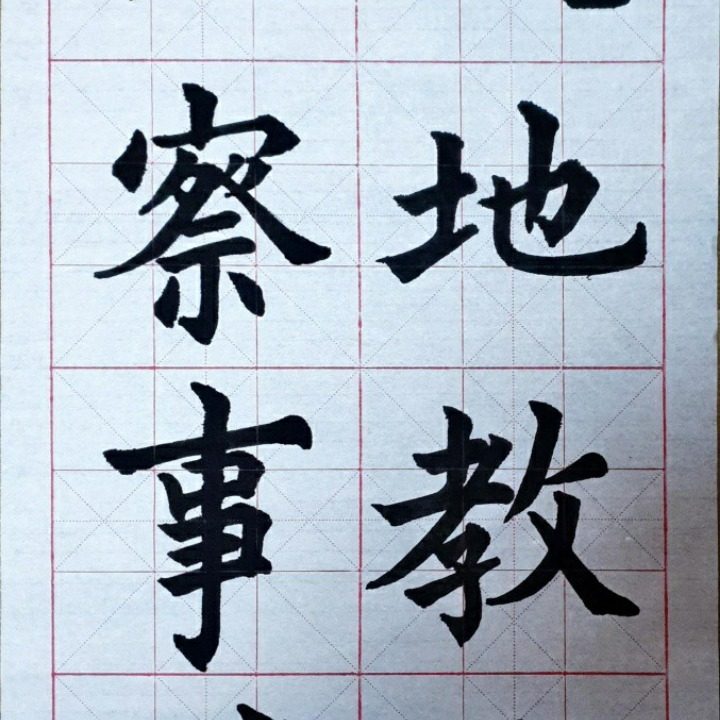 地教
察事